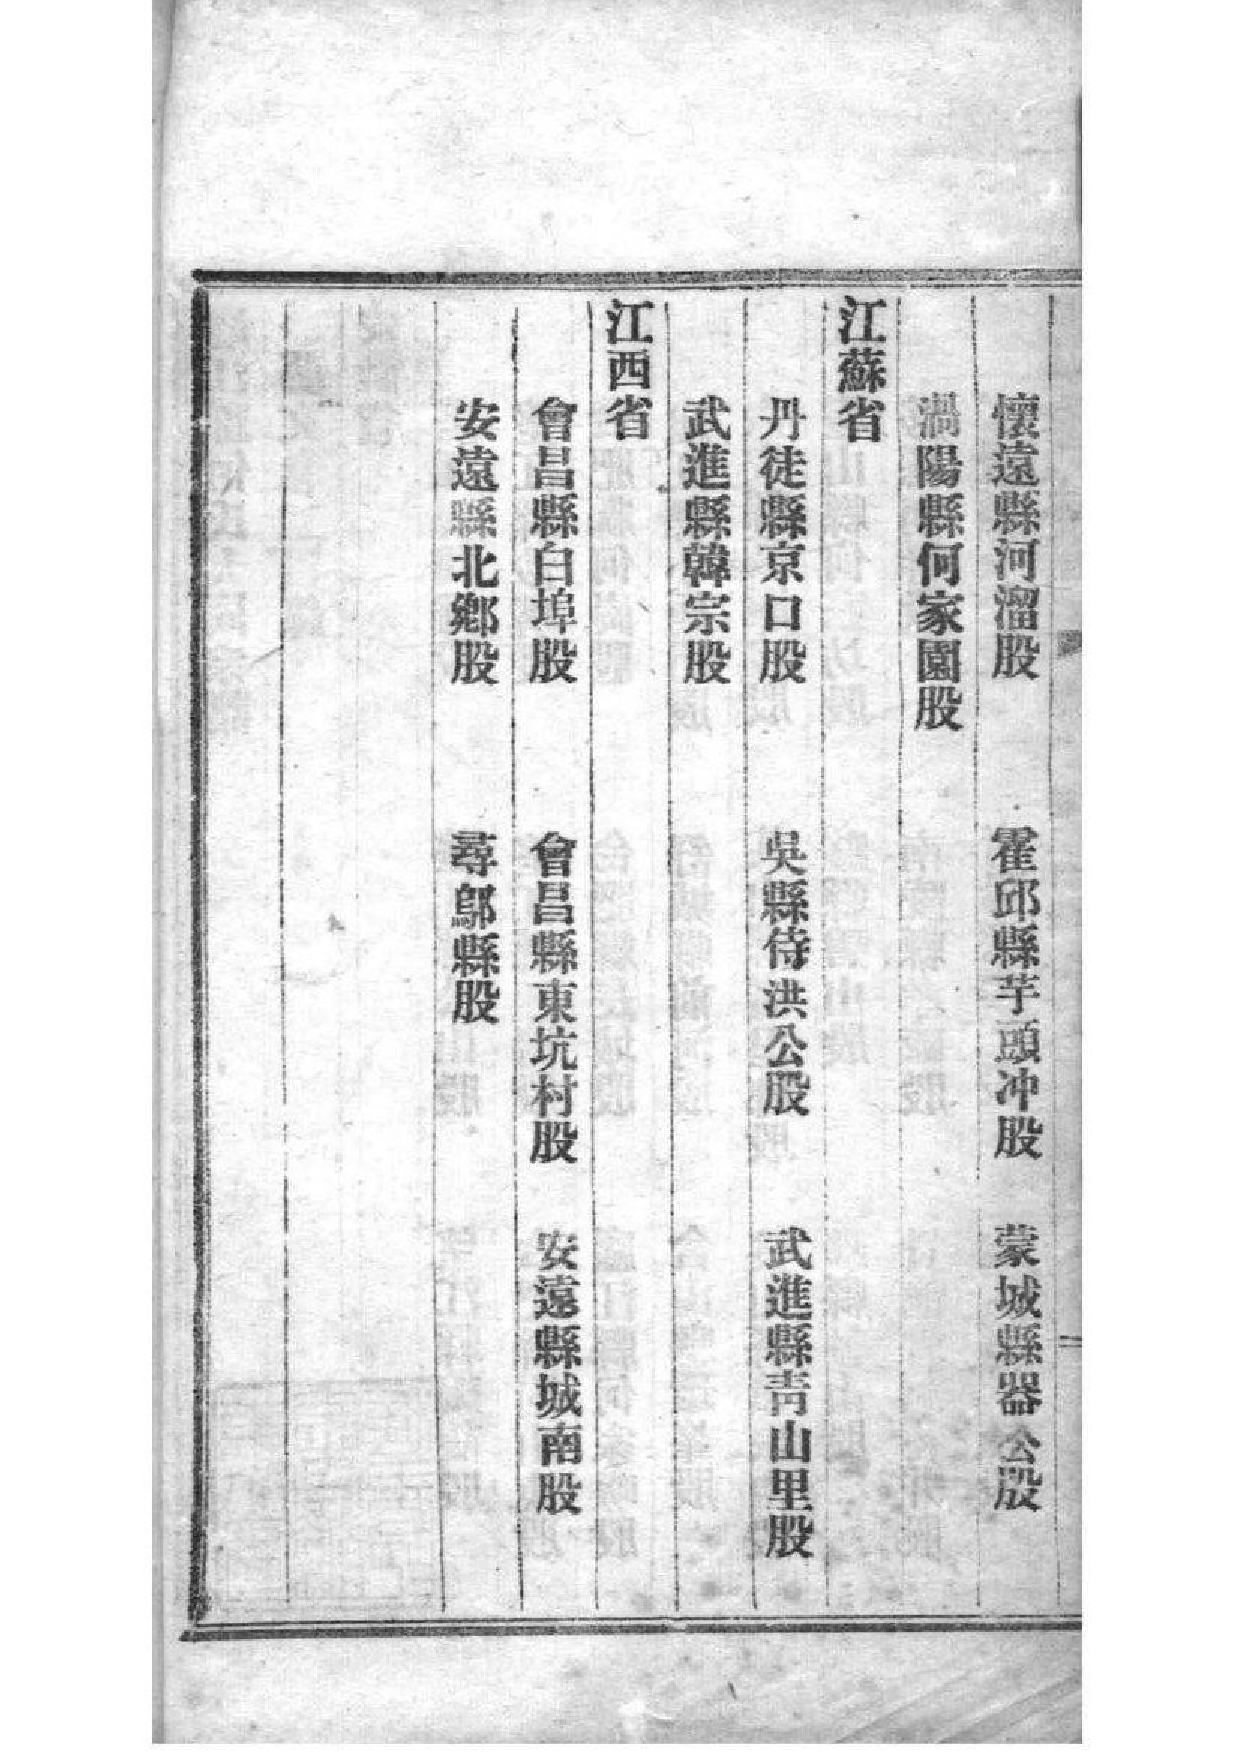 懷遠縣河溜股　霍邱縣芋頭冲股　蒙城縣器公股
渦陽縣何家園股
江蘇省
丹徒縣京口股　吳縣侍洪公股　武進縣靑山里股
武進縣韓宗股
江西省
會昌縣白埠股　會昌縣東坑村股　安遠縣城南股
安遠縣北鄉股　尋鄔縣股